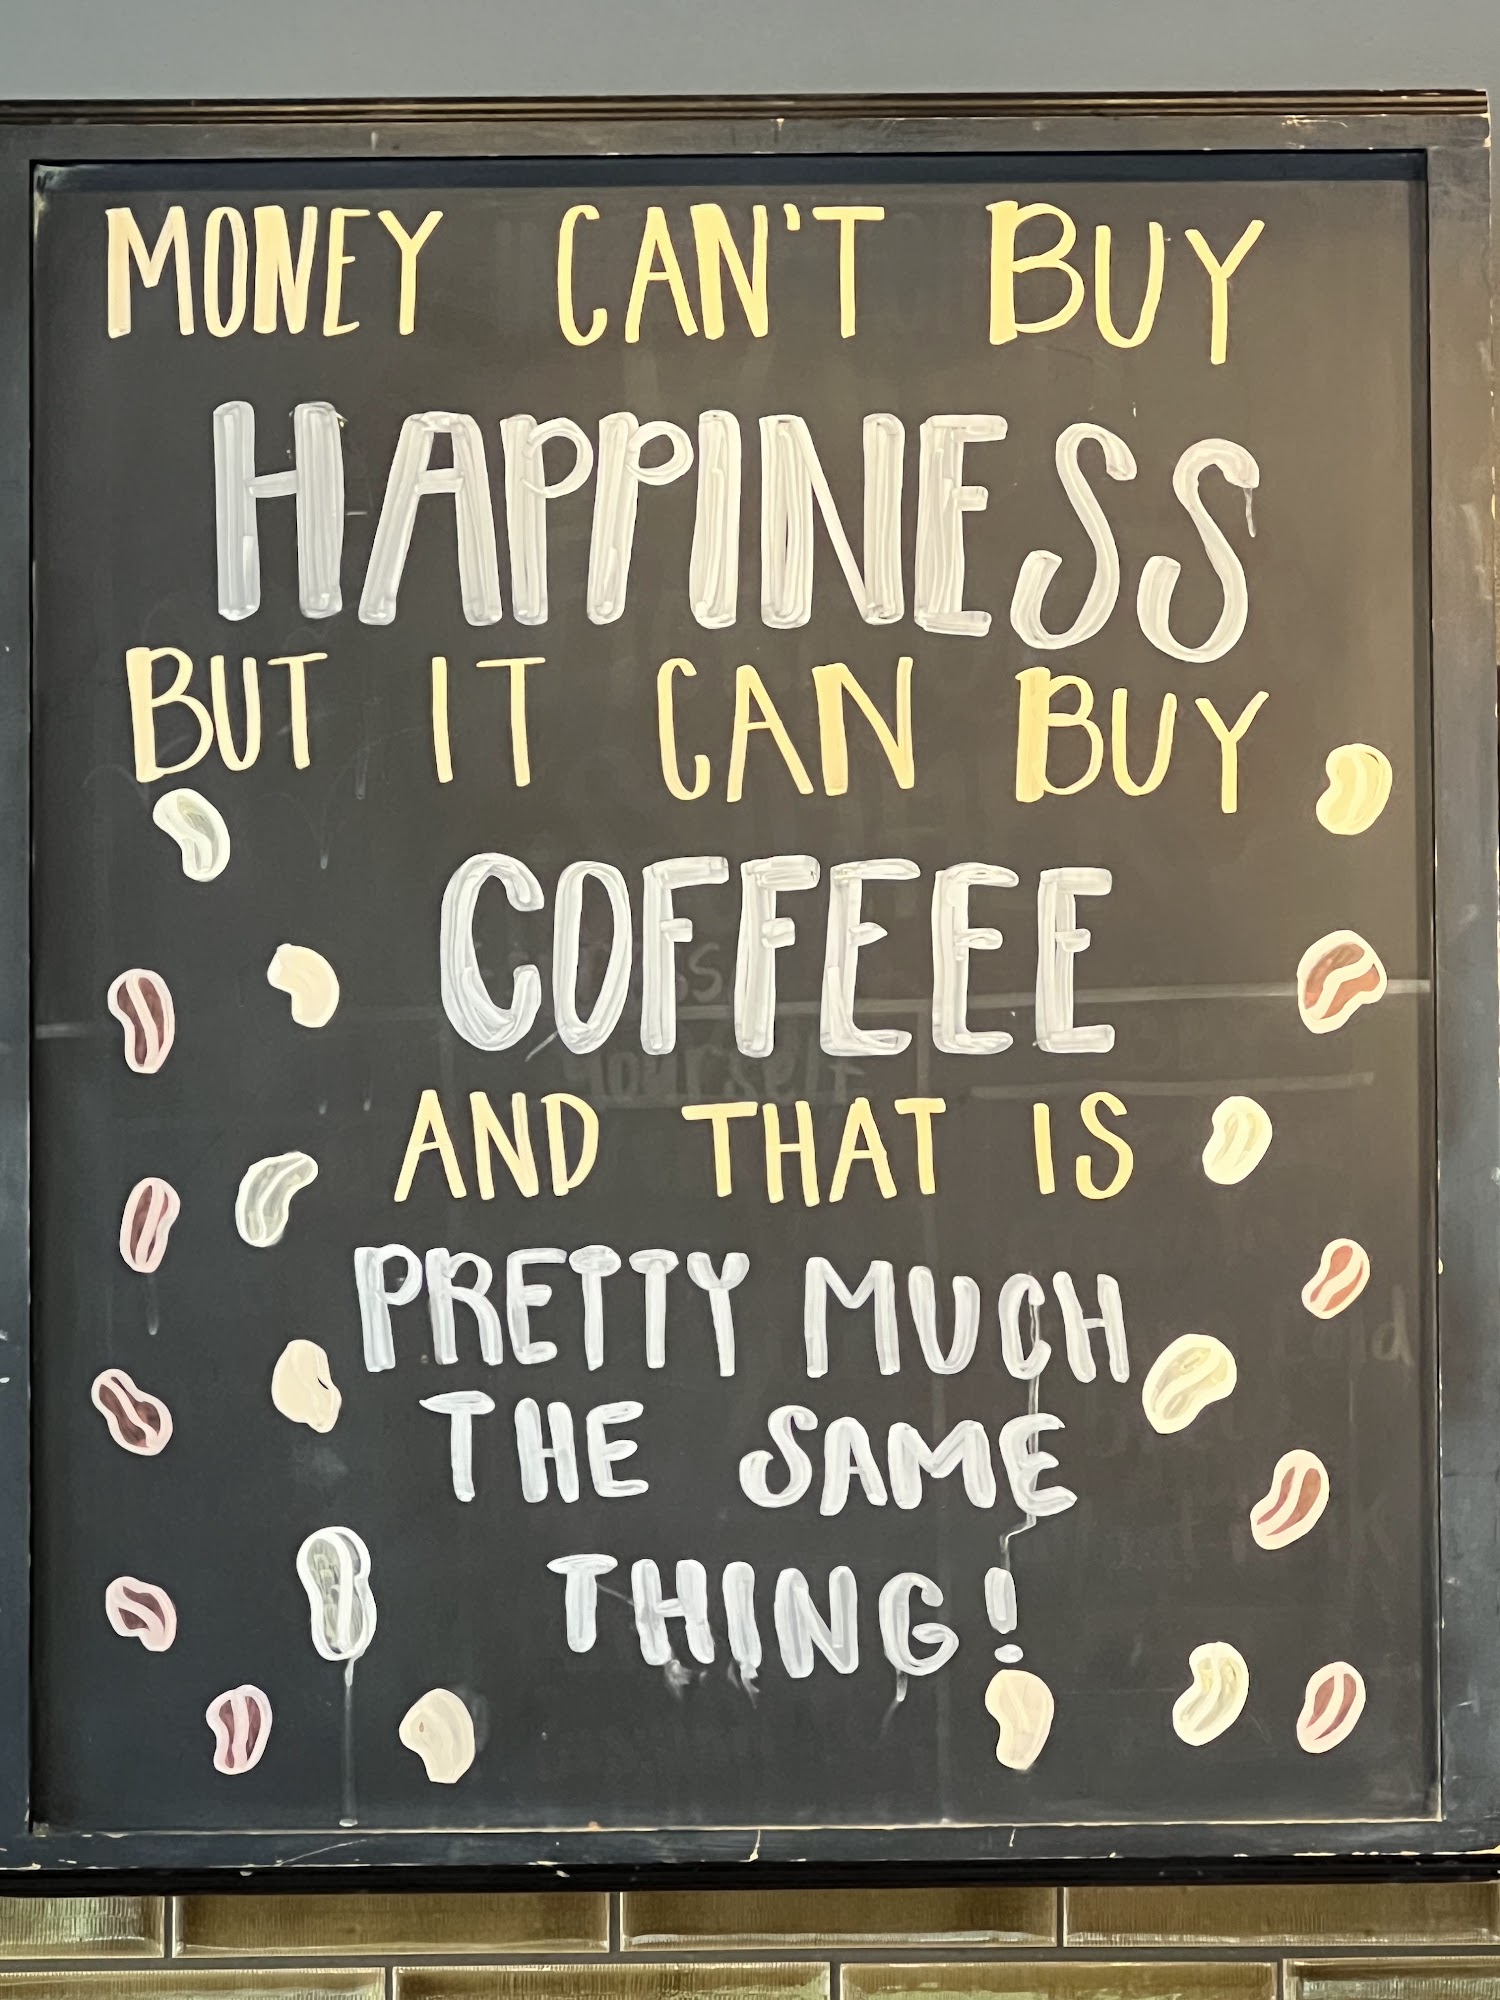 MONEY CAN'T BUY
HAPPINESS
BUT IT CAN BUY
COFFEEE
AND THAT IS
PRETTY MUCH
THE SAME
THING!